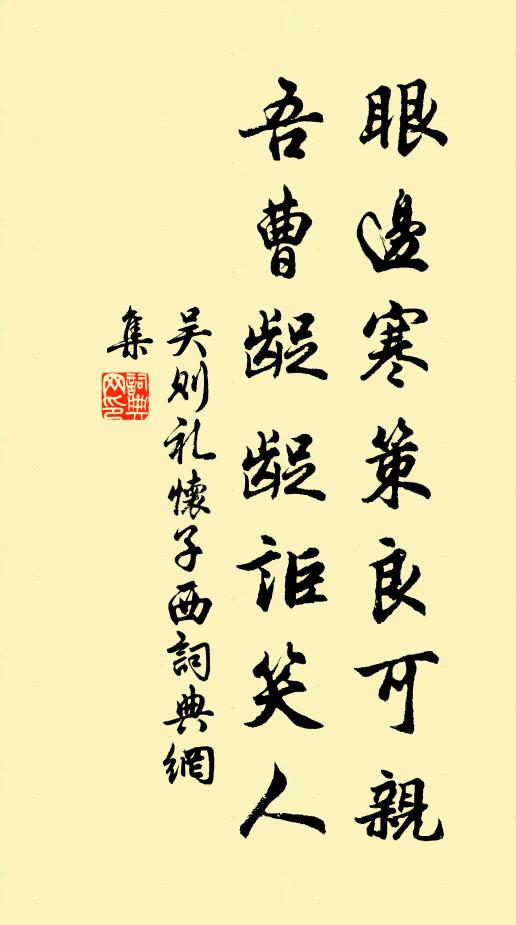 眼邊寒策良可親
吾曹齪齪詎笑人
吴则礼懷子西詞典網
集
詞典
网印